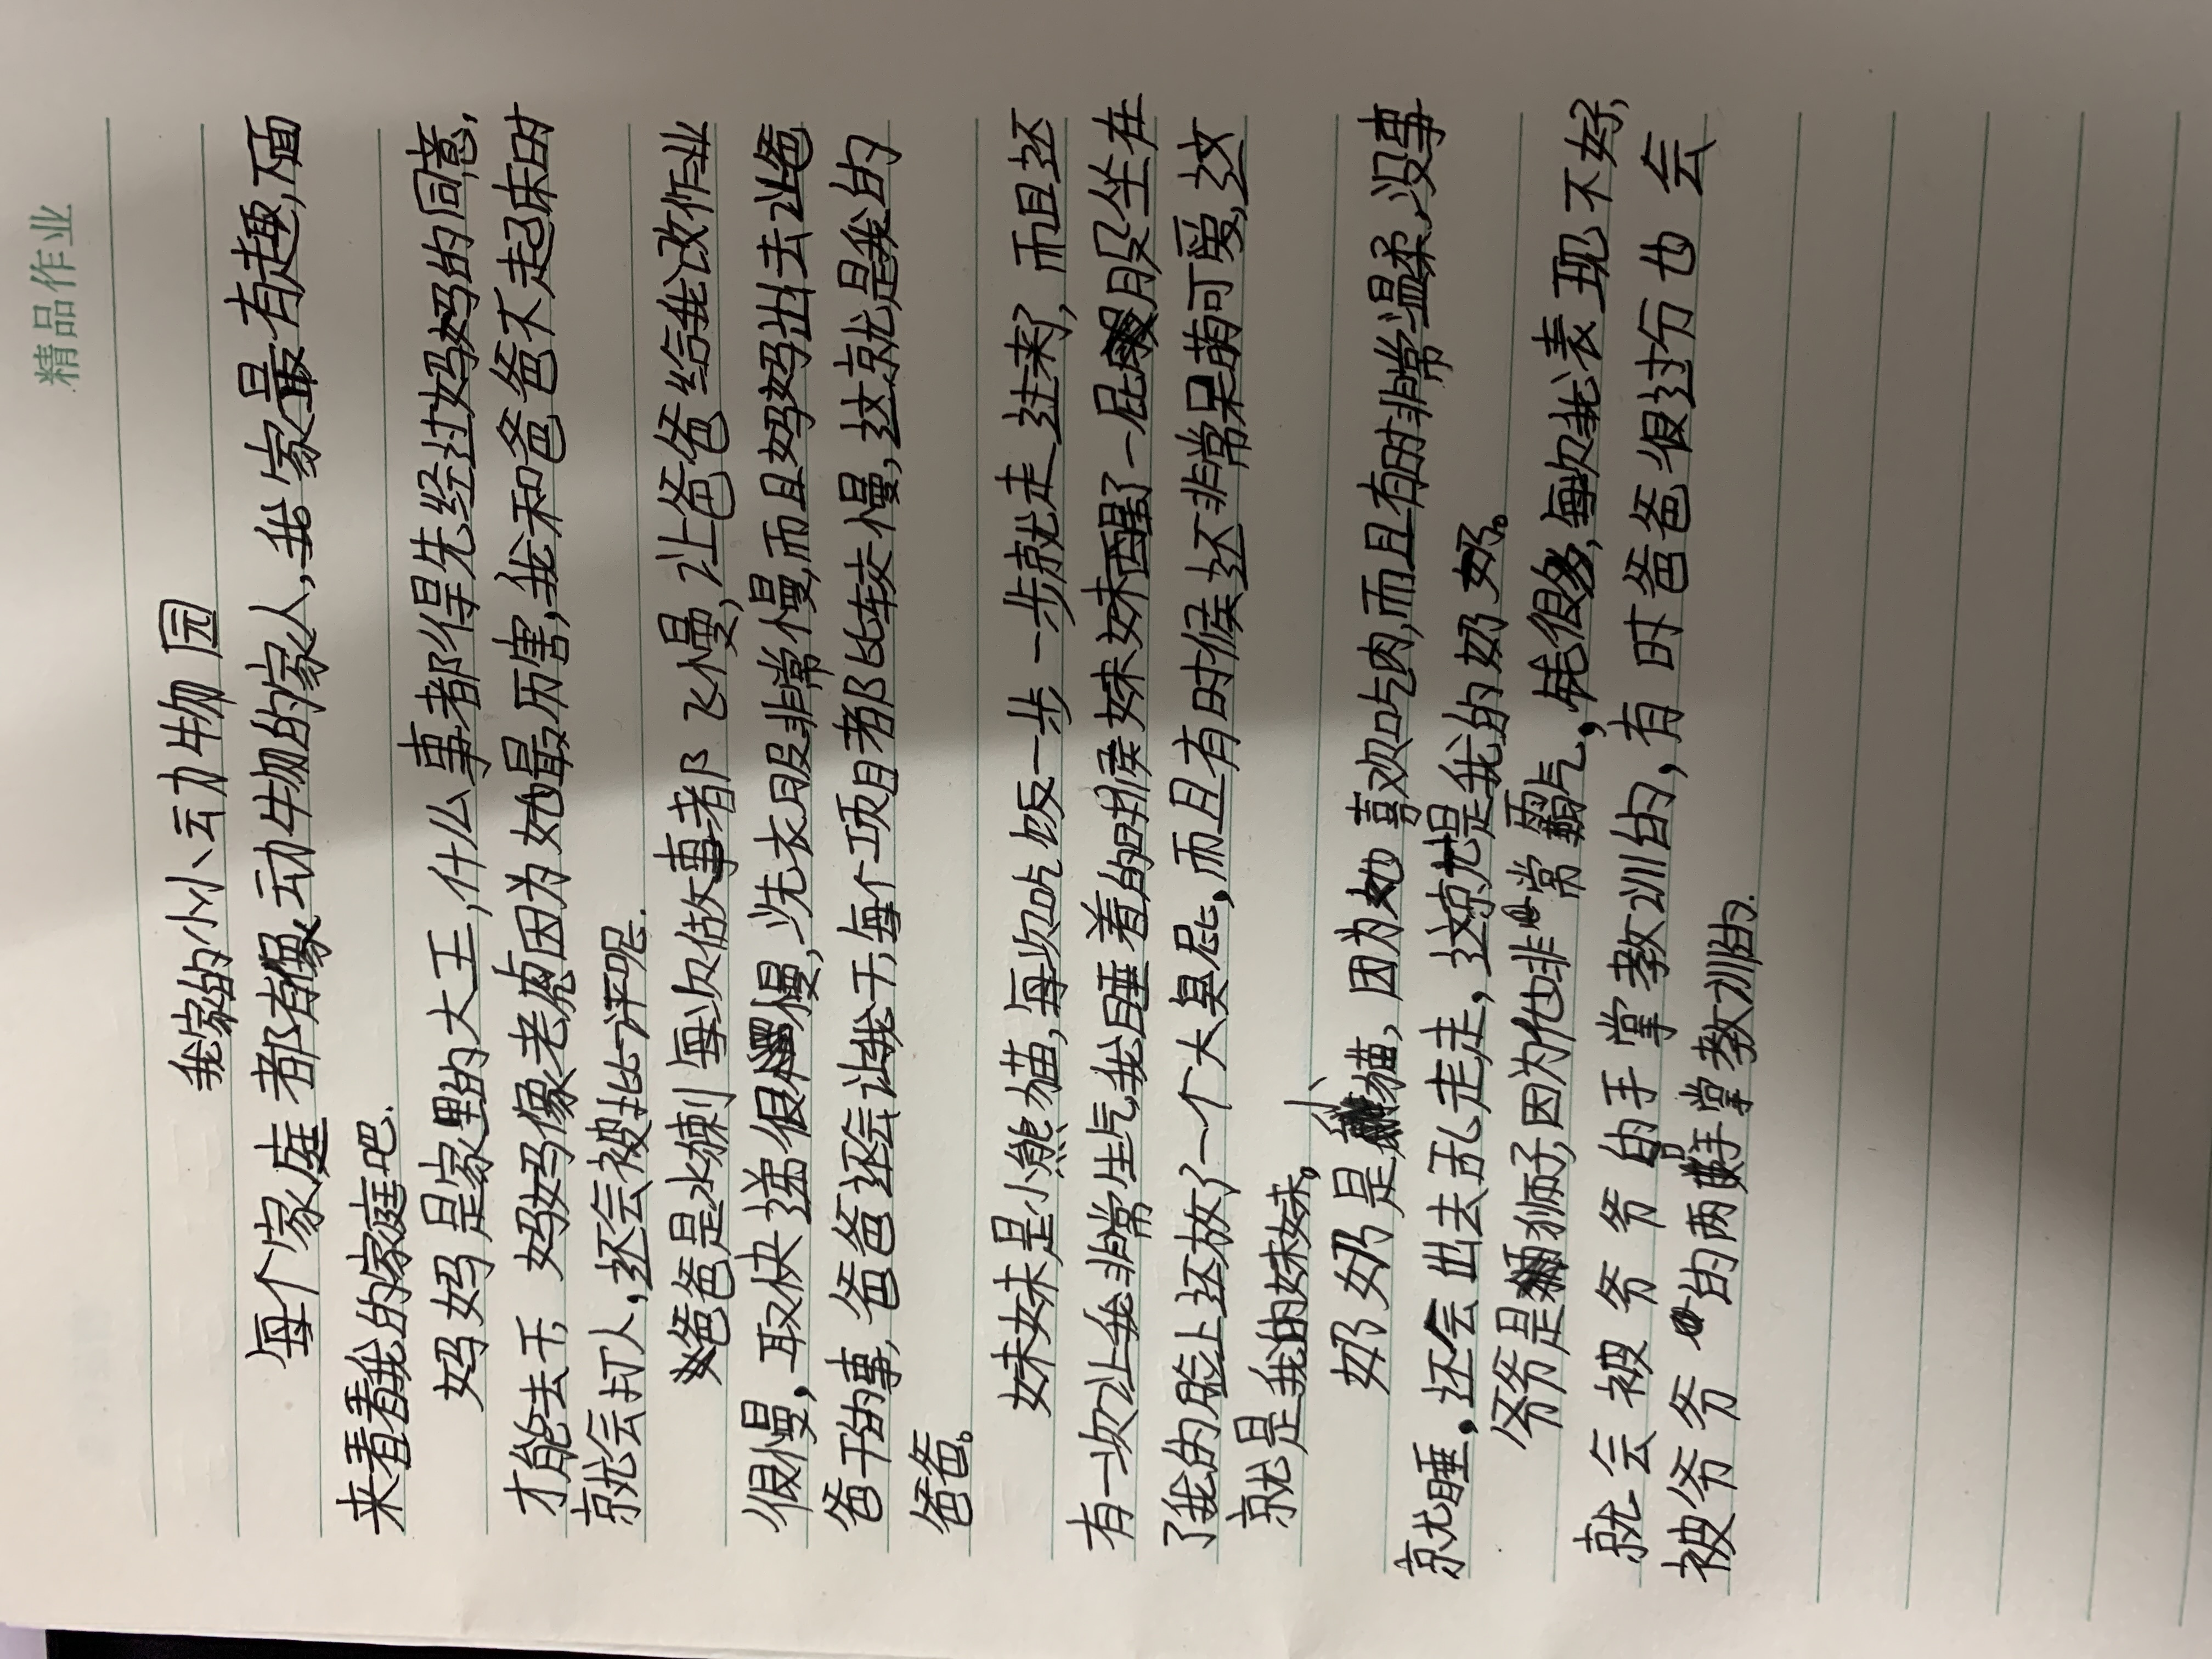 精品作业
我家的小小动物园
每个家庭都有像动物的家人,我家最有趣,下面
来看看我的家庭吧.
妈妈是家里的大王,什么事都得先经过妈妈的同意,
才能去干,妈妈像老虎因为她最历害,我和爸爸不起床时
就会打人,还会被批评呢.
爸爸是水獭每次做事都飞慢,让爸爸给我改作业
很慢,取快递很慢,洗衣服非常慢,而且妈妈出去让爸
爸干的事,爸爸还会让我干,每个项目都比较慢,这就是我的
爸爸。
妹妹是小熊猫,每次吃饭一步一步就走过来了,而且还
有一次让我非常生气我睡着的时候妹妹醒了一屁股坐在
了我的脸上还放了一个大臭屁,而且有时候还非常呆萌可爱,这
就是我的妹妹。
奶奶是小猫,因为她喜欢吃肉,而且有时非常温柔,没事
就睡,还会出去乱走走,这就是我的奶奶。
爷爷是狮子,因为他非常霸气,毛很多,每次我表现不好,
就会被爷爷的手掌教训的,有时爸爸很过分也会
被爷爷的两只手掌教训的.